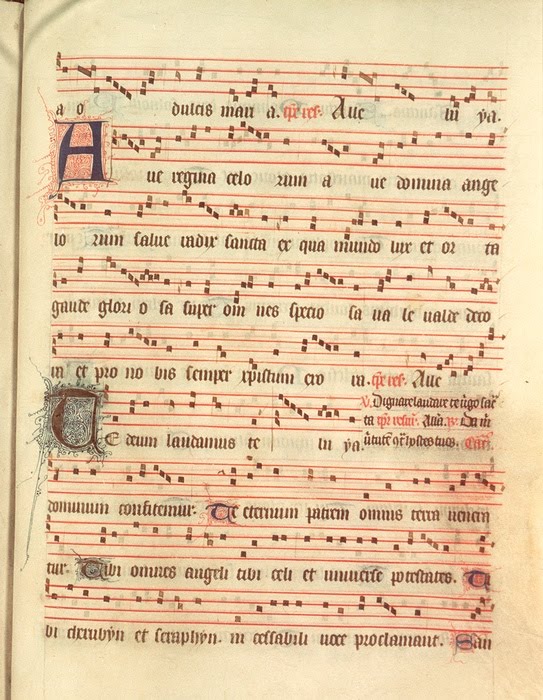 a o dulcis mari a. Aue lu ya.
A ue regina celo rum a ue domina ange
lo rum salue radix sancta ex qua mundo lux et or ta
gaude glori o sa super om nes specio sa ua le ualde deco
ra et pro no bis semper xpistum exo ra. Aue
V. Dignare laudare te uirgo sacra
ta Aue. Da m
utute hostes tuos.
T E deum laudamus te lu ya.
dominum confitemur. Te eternum patrem omnis terra uenera
tur. Tibi omnes angeli tibi celi et uniuerse potestates. Ti
bi cherubyn et seraphyn. in cessabili uoce proclamant. San